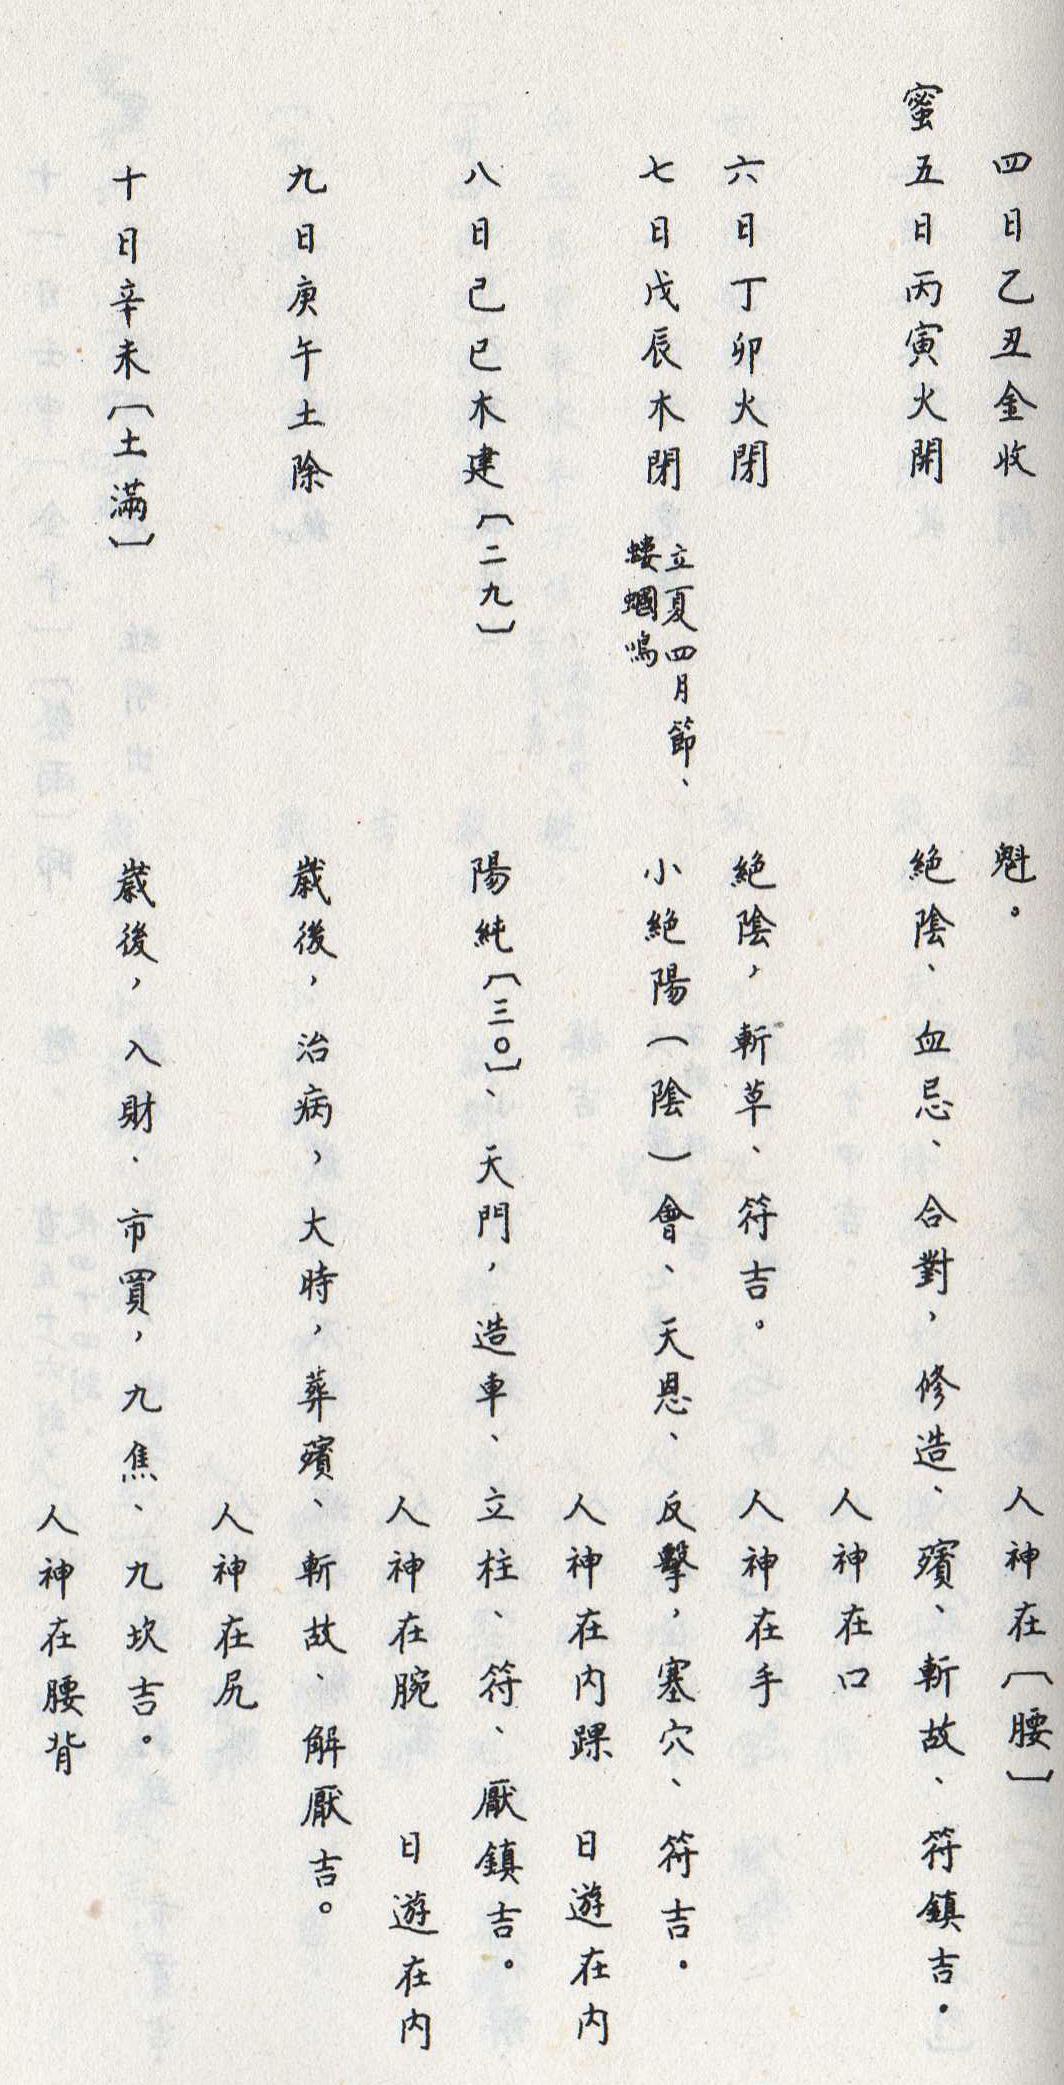 四日乙丑金收 魁。 人神在〔腰〕
蜜五日丙寅火開 絕陰、血忌、合對，修造、殯、斬故、符鎮吉。
人神在口
六日丁卯火閉 絕陰，斬草、符吉。 人神在手
七日戊辰木閉 立夏四月節、
螻蟈鳴
小絕陽（陰）會、天恩、反擊，塞穴、符吉。
人神在內踝 日遊在內
八日己巳木建〔二九〕 陽純〔三〇〕、天門，造車、立柱、符、厭鎮吉。
人神在腕 日遊在內
九日庚午土除 歲後，治病，大時，葬殯、斬故、解厭吉。
人神在尻
十日辛未〔土滿〕 歲後，入財、市買，九焦、九坎吉。
人神在腰背